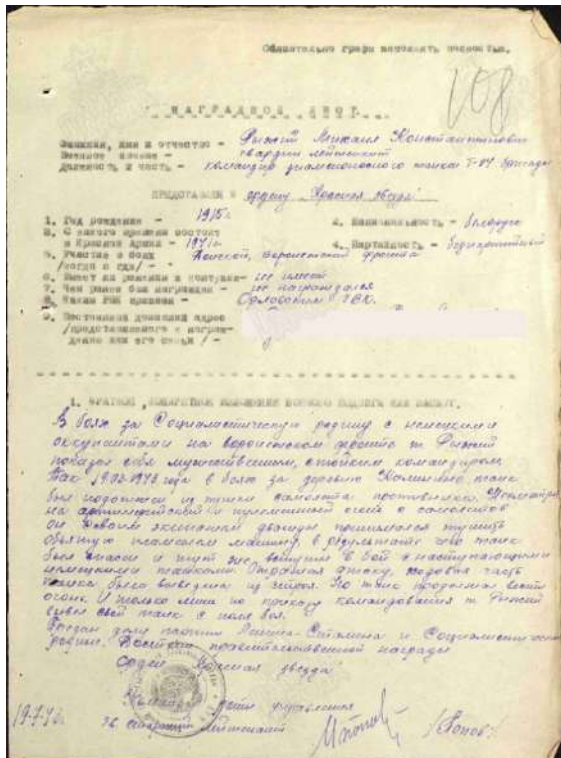 Обязательно графы заполнять полностью.
108
НАГРАДНОЙ ЛИСТ
Фамилия, имя и отчество - Рыжий Михаил Константинович
Военное звание - гвардии лейтенант
Должность и часть - командир танка Т-34 бригады
ПРЕДСТАВЛЕН К ордену "Красная звезда"
1. Год рождения - 1915г.
2. Национальность - белорус
3. С какого времени состоит
в Красной Армии - 1941г.
4. Партийность - беспартийный
5. Участие в боях
/когда и где/ - Воронежский фронт
6. Имеет ли ранения и контузии - не имеет
7. Чем ранее был награжден - не награждался
8. Каким РВК призван - Орловским ГВК.
9. Постоянный домашний адрес
/представляемого к награж-
дению или его семьи / -
1. КРАТКОЕ, КОНКРЕТНОЕ ИЗЛОЖЕНИЕ БОЕВОГО ПОДВИГА ИЛИ ЗАСЛУГ.
В боях за Социалистическую родину с немецкими
оккупантами на воронежском фронте т. Рыжий
показал себя мужественным, стойким командиром.
Так года в боях за деревню танк
был подожжен из пушки самолета противника. Несмотря
на артиллерийский и пулеметный огонь с самолетов
он со своим экипажем дважды принимался тушить
объятую пламенем машину, в результате чего танк
был спасен и тут же вступил в бой с наступающими
немецкими танками. Отражая атаку, ходовая часть
танка была выведена из строя. Но танк продолжал вести
огонь. И только лишь по приказу командования т. Рыжий
вывел свой танк с поля боя.
Предан делу партии Ленина-Сталина и Социалистической
родине. Достоин правительственной награды
Орден "Красная звезда"
управления
лейтенант
/Попов/